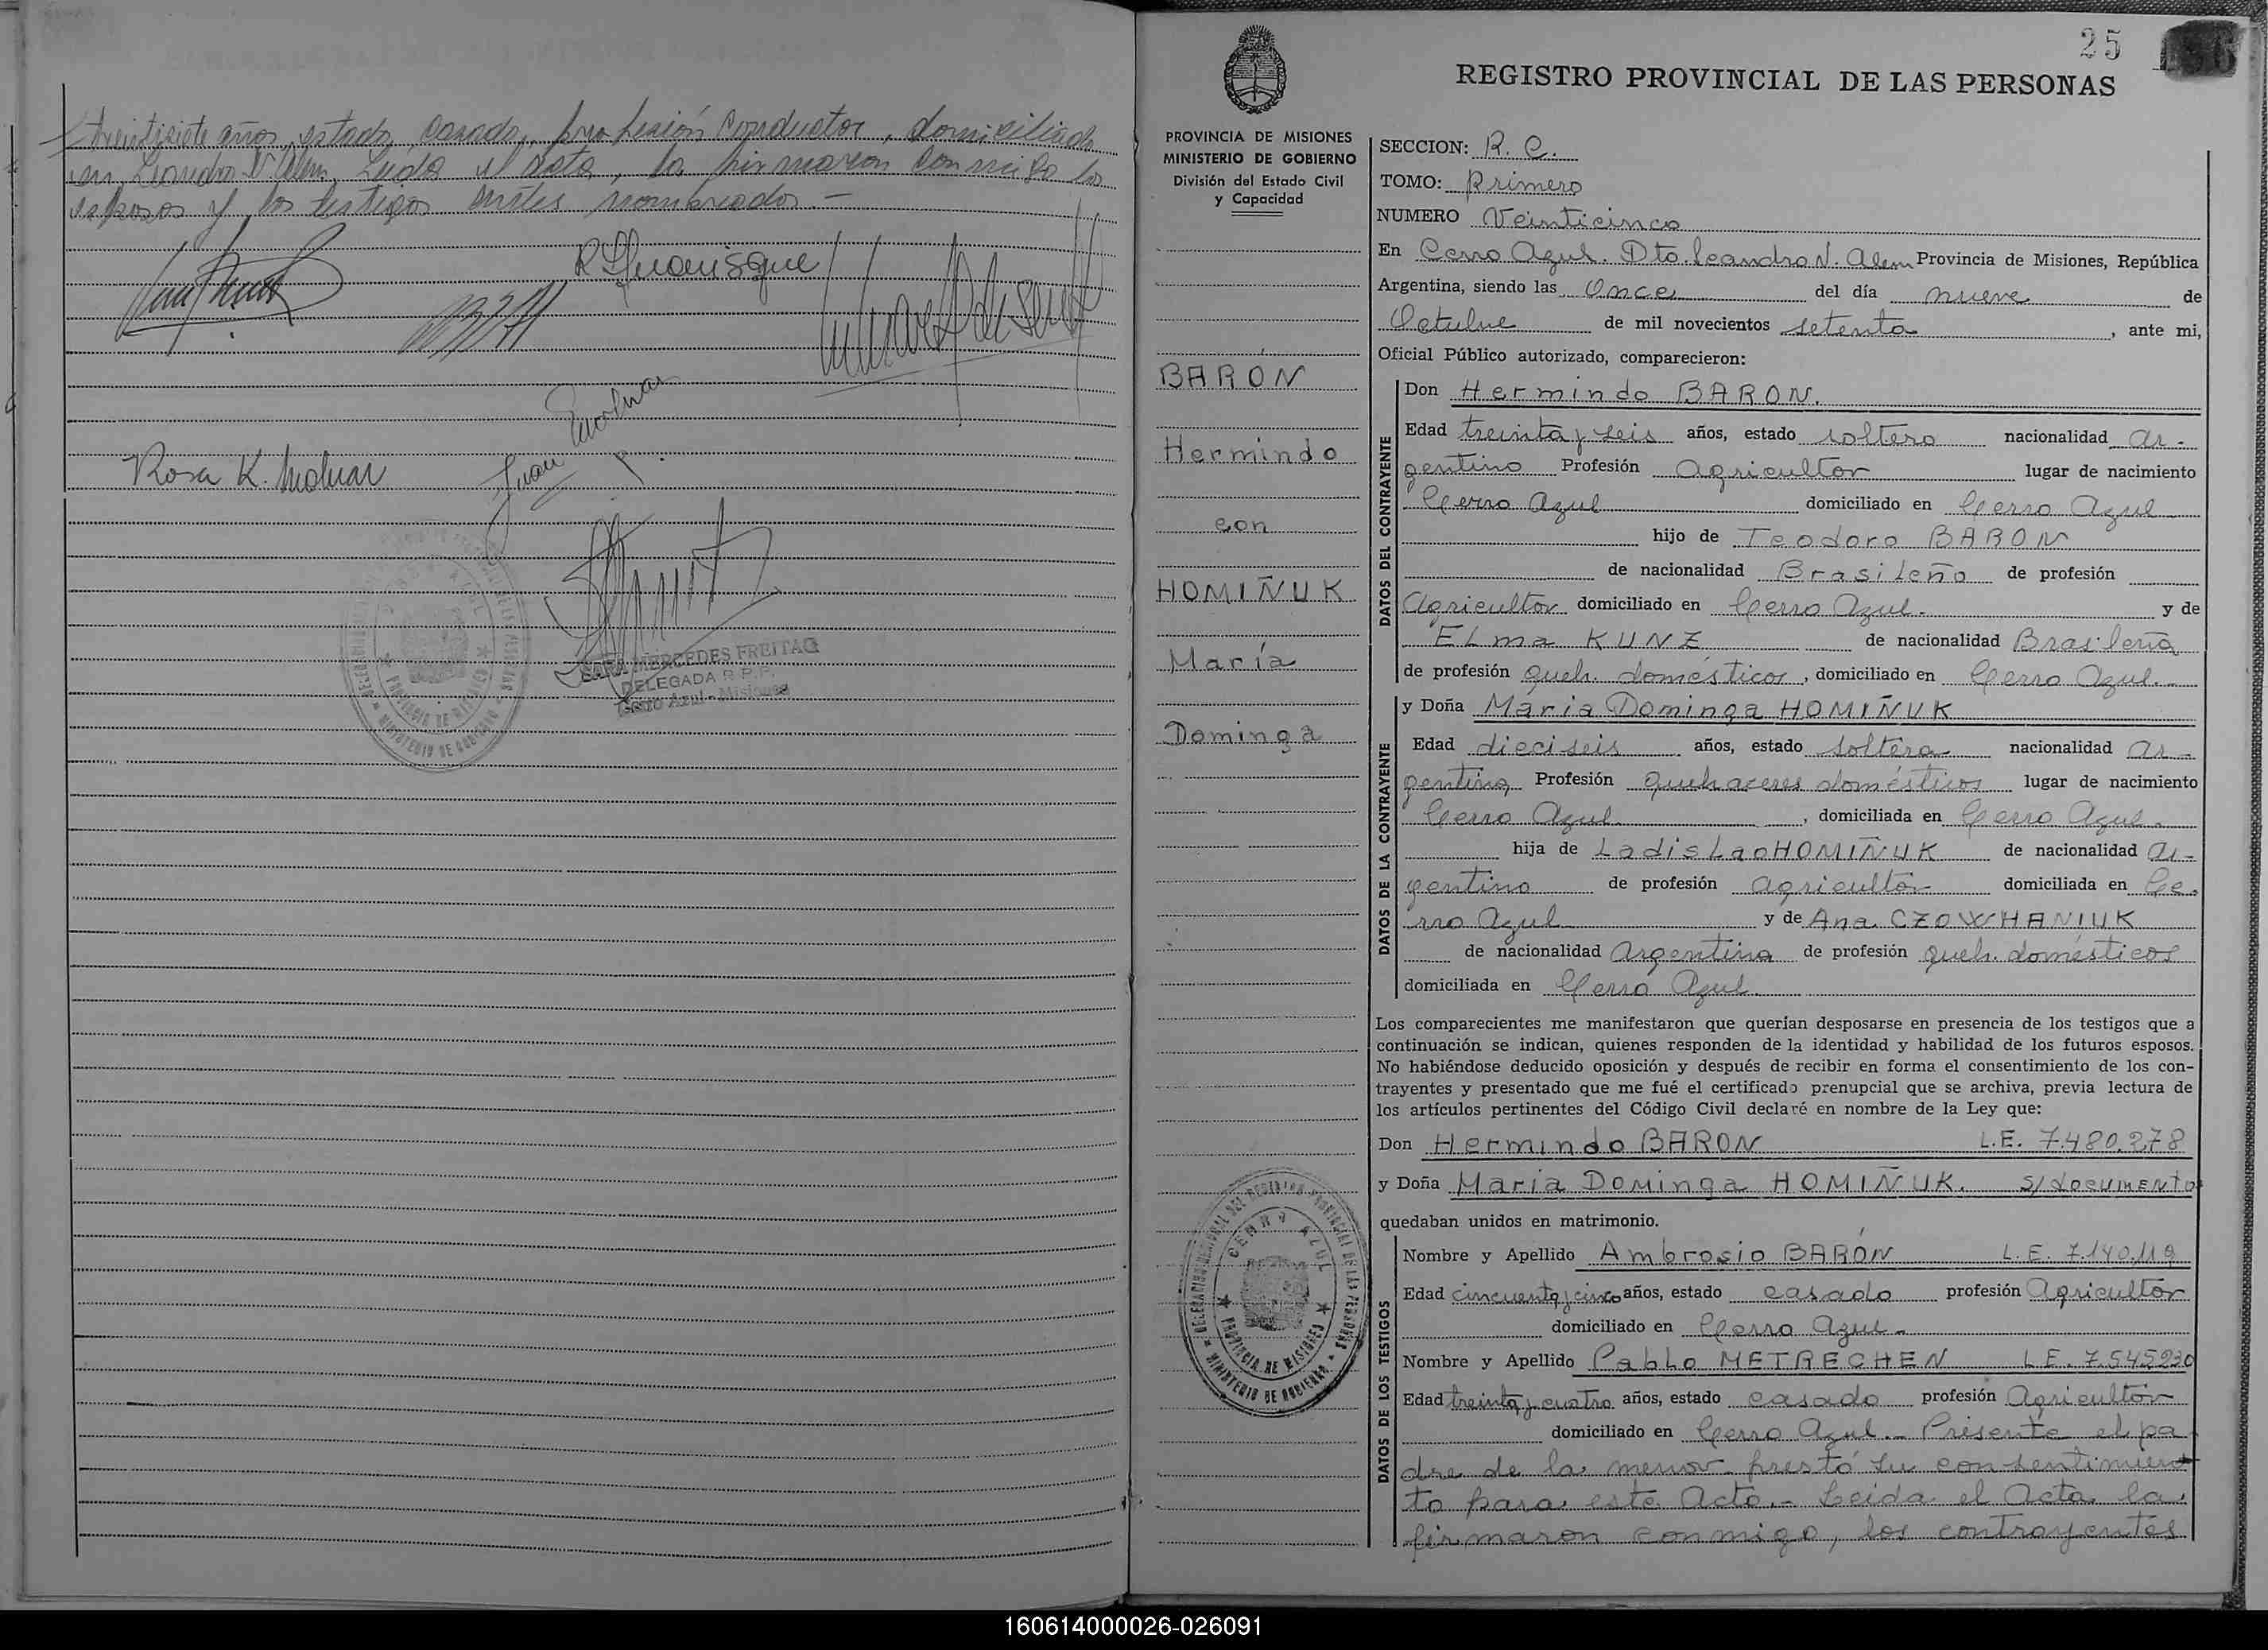 treintisiete años, estado casado, profesión Conductor, domiciliado
en Leandro N. Alem. Leida el Acta, la firmaron conmigo los
esposos y los testigos antes nombrados -
Rosa K. Moluar
Juan
SARA MERCEDES FREITAG
DELEGADA R.P.P.
Cerro Azul - Misiones
25
REGISTRO PROVINCIAL DE LAS PERSONAS
PROVINCIA DE MISIONES
MINISTERIO DE GOBIERNO
División del Estado Civil
y Capacidad
BARÓN
Hermindo
con
HOMIÑUK
María
Dominga
SECCION: R. C.
TOMO: Primero
NUMERO Veinticinco
En Cerro Azul. Dto. Leandro N. Alem Provincia de Misiones, República
Argentina, siendo las Once del día nueve de
Octubre de mil novecientos setenta, ante mi,
Oficial Público autorizado, comparecieron:
DATOS DEL CONTRAYENTE
Don Hermindo BARON.
Edad treinta y seis años, estado soltero nacionalidad Ar-
gentino Profesión Agricultor lugar de nacimiento
Cerro Azul domiciliado en Cerro Azul
hijo de Teodoro BARON
de nacionalidad Brasileño de profesión
Agricultor domiciliado en Cerro Azul. y de
ELma KUNZ de nacionalidad Brasileña
de profesión Queh. domésticos, domiciliado en Cerro Azul.-
DATOS DE LA CONTRAYENTE
y Doña María Dominga HOMIÑUK
Edad dieciseis años, estado soltera nacionalidad Ar-
gentina Profesión Quehaceres domésticos lugar de nacimiento
Cerro Azul, domiciliada en Cerro Azul.
hija de Ladislao HOMIÑUK de nacionalidad Ar-
gentino de profesión Agricultor domiciliada en Ce-
rro Azul y de Ana CZOWHANIUK
de nacionalidad Argentina de profesión queh. domésticos
domiciliada en Cerro Azul.
Los comparecientes me manifestaron que querían desposarse en presencia de los testigos que a
continuación se indican, quienes responden de la identidad y habilidad de los futuros esposos.
No habiéndose deducido oposición y después de recibir en forma el consentimiento de los con-
trayentes y presentado que me fué el certificado prenupcial que se archiva, previa lectura de
los artículos pertinentes del Código Civil declaré en nombre de la Ley que:
Don Hermindo BARON L.E. 7.480.278
y Doña María Dominga HOMIÑUK. s/documento
quedaban unidos en matrimonio.
DATOS DE LOS TESTIGOS
Nombre y Apellido Ambrosio BARÓN L.E. 7.140.119
Edad cincuenta y cinco años, estado casado profesión Agricultor
domiciliado en Cerro Azul.
Nombre y Apellido Pablo METRECHEN L.E. 7.545.230
Edad treinta y cuatro años, estado casado profesión Agricultor
domiciliado en Cerro Azul.- Presente el pa-
dre de la menor prestó su consentimien-
to para este Acto.- Leida el Acta la
firmaron conmigo, los contrayentes
CERRO AZUL
PROVINCIA DE MISIONES
MINISTERIO DE GOBIERNO
160614000026-026091